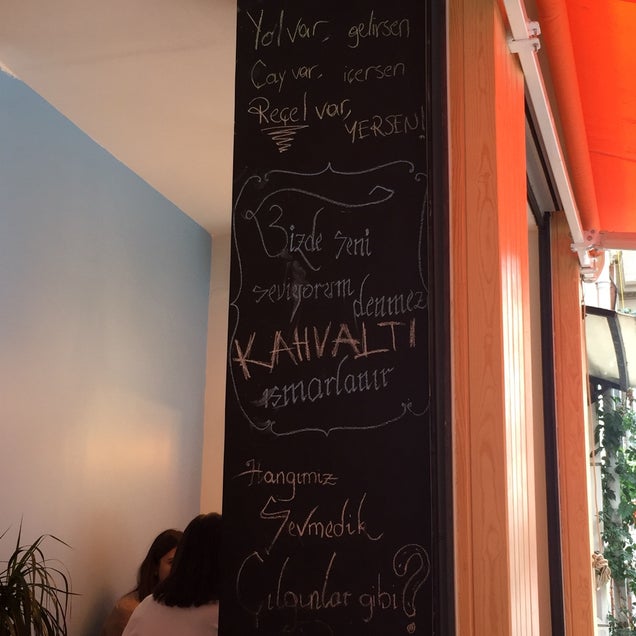 Yol var, gelirsen
Çay var, içersen
Reçel var,
YERSEN!
Bizde seni
seviyorum
denmez
KAHVALTI
ısmarlanır
Hangimiz
Sevmedik
Çılgınlar gibi?